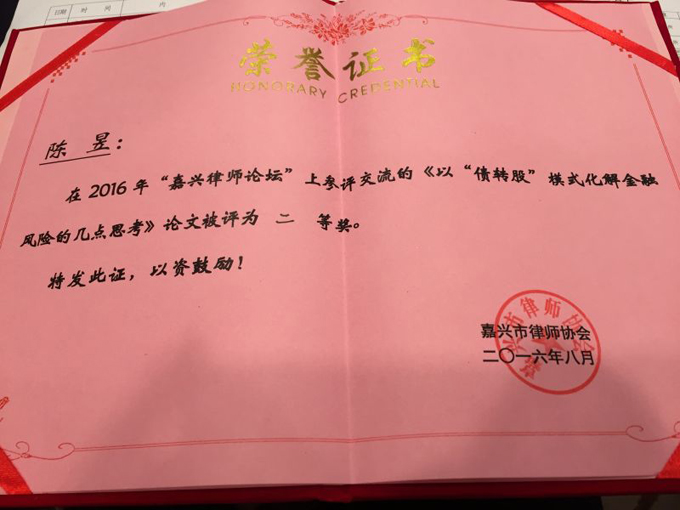 日期 时间 内
荣誉证书
HONORARY CREDENTIAL
陈昱：
在 2016 年“嘉兴律师论坛”上参评交流的《以“债转股”模式化解金融
风险的几点思考》论文被评为 二 等奖。
特发此证，以资鼓励！
嘉兴市律师协会
二〇一六年八月
嘉兴市律师协会